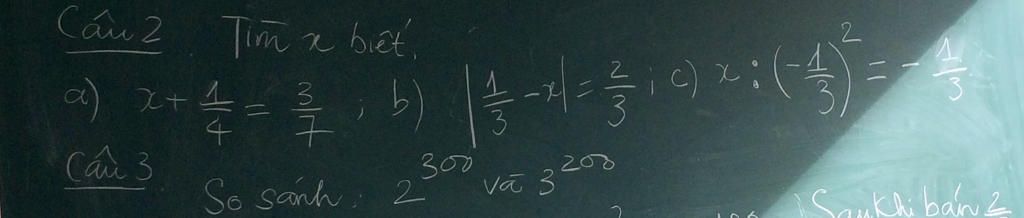 Câu 2. Tìm x biết.
a) x + 1/4 = 3/7 ; b) |1/3 - x| = 2/3 ; c) x : (-1/3)² = -1/3
Câu 3
So sánh : 2³⁰⁰ và 3²⁰⁰
Sau khi bán 2